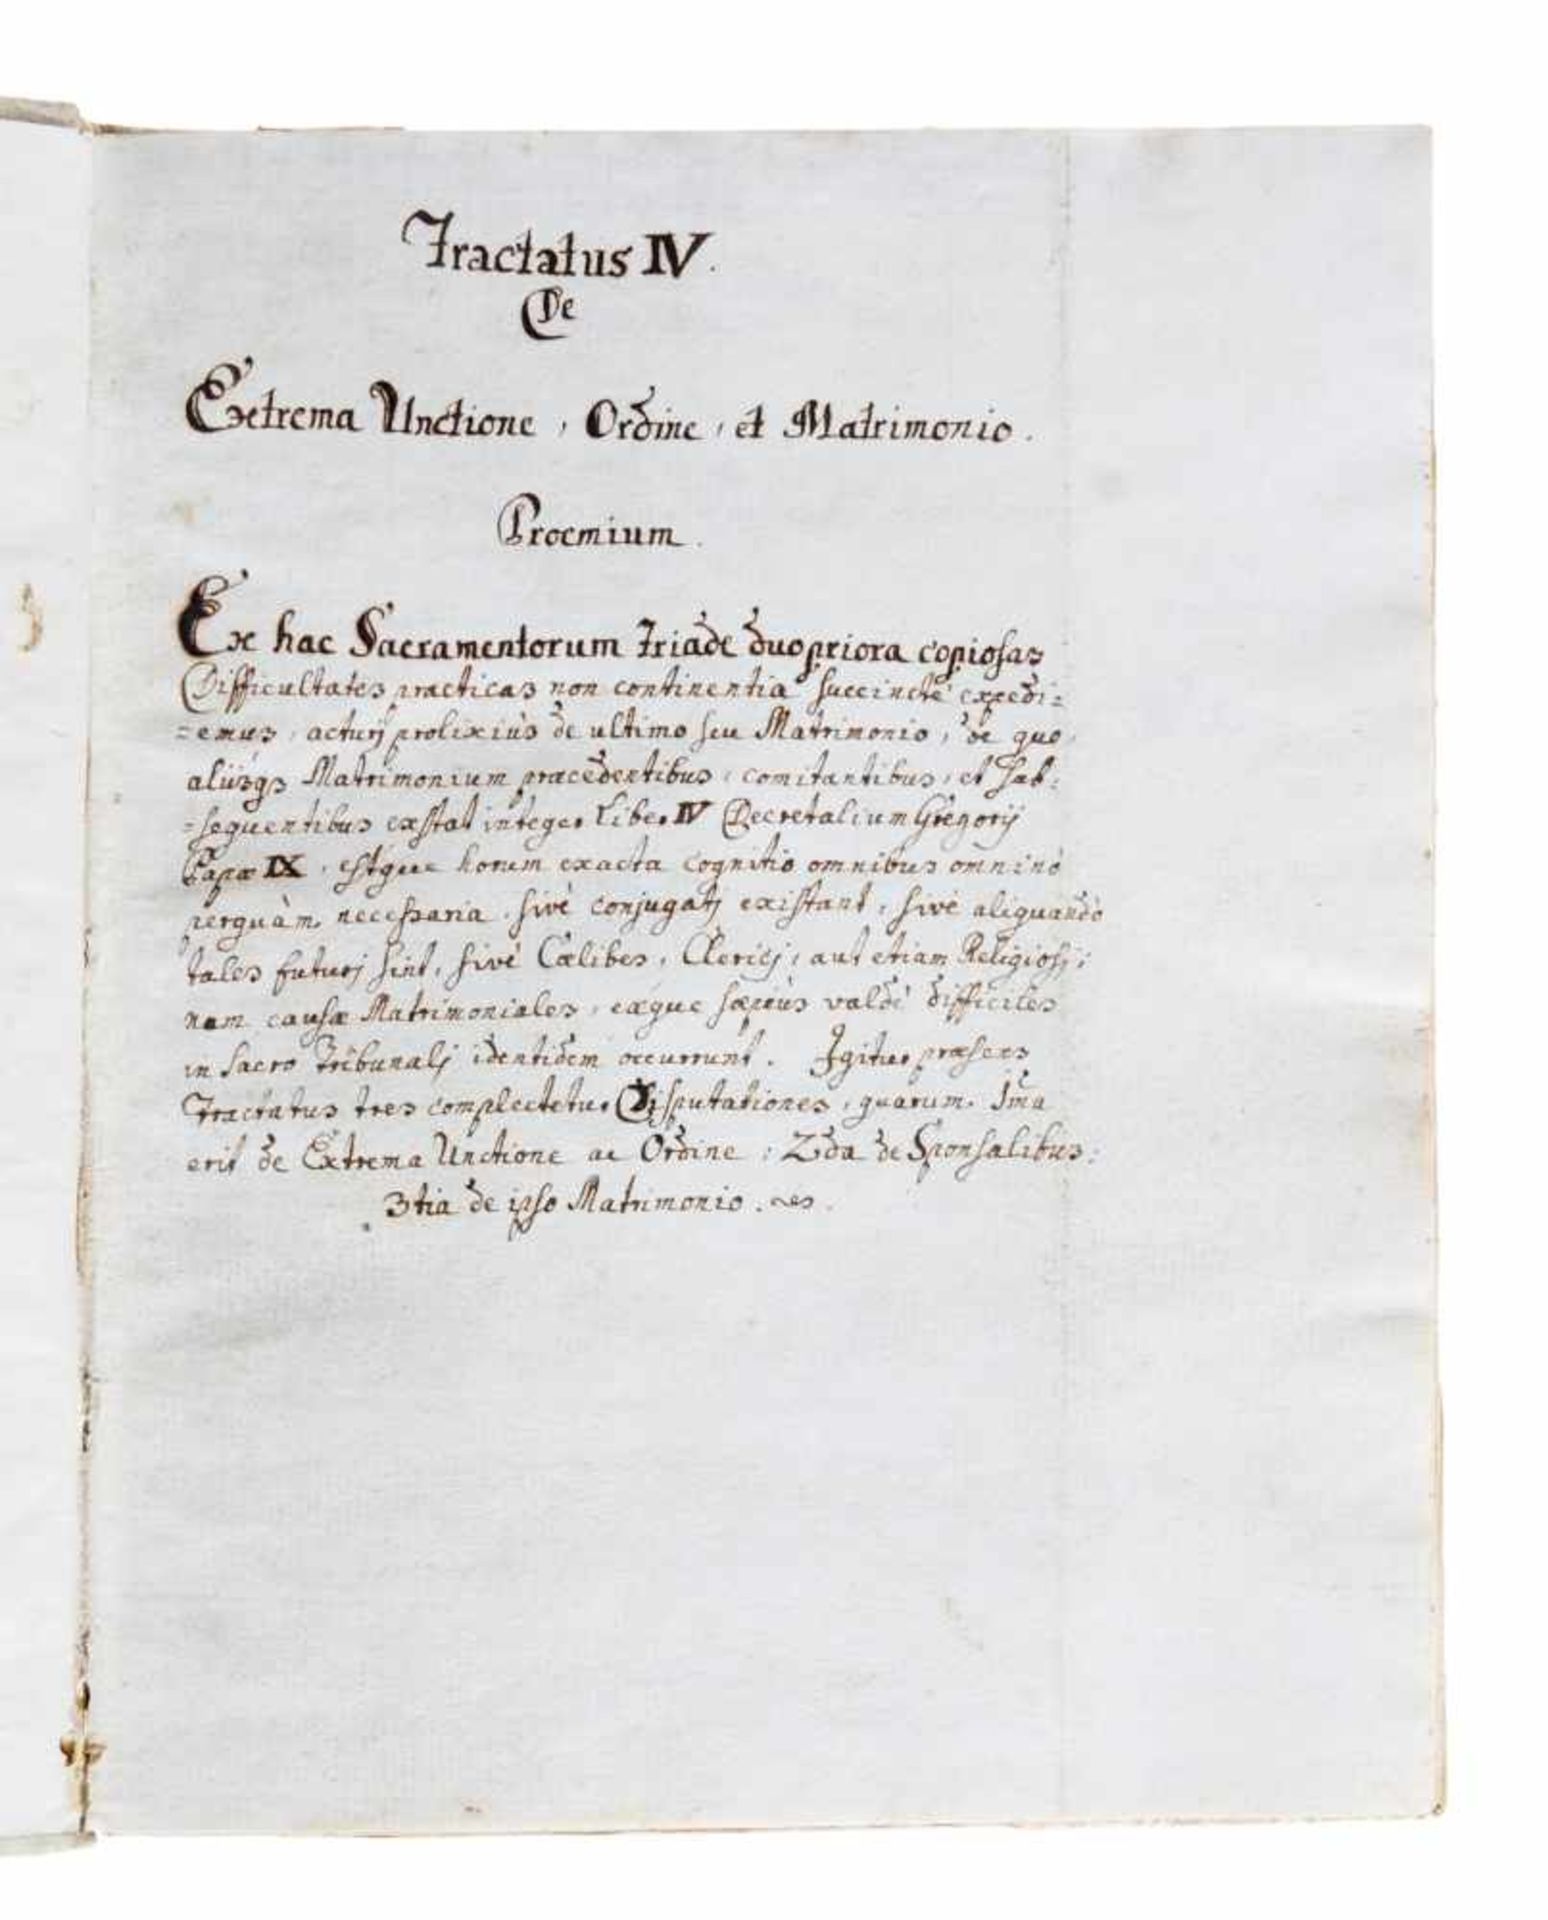 Tractatus IV.
De
Extrema Unctione, Ordine, et Matrimonio.
Proemium.
Ex hac Sacramentorum Triade duo priora copiosas
Difficultates practicas non continentia succinctè expedi=
=emus, acturj prolixiùs de ultimo seu Matrimonio, de quo,
aliisqs Matrimonium praecedentibus, comitantibus, et sub=
=sequentibus exstat integer Liber IV Decretalium Gregorij
Papae IX, estque horum exacta cognitio omnibus omninò
perquàm necessaria, sivè conjugatj existant, sivè aliquandò
tales futurj sint, sivè Caelibes, Clericj, aut etiam Religiosj;
nam causae Matrimoniales, eaeque saepiùs valdè difficiles
in sacro Tribunalj identidem occurrunt. Igitur praesens
Tractatus tres complectetur Disputationes, quarum 1ma
erit de Extrema Unctione ac Ordine: 2da de Sponsalibus:
3tia de ipso Matrimonio.